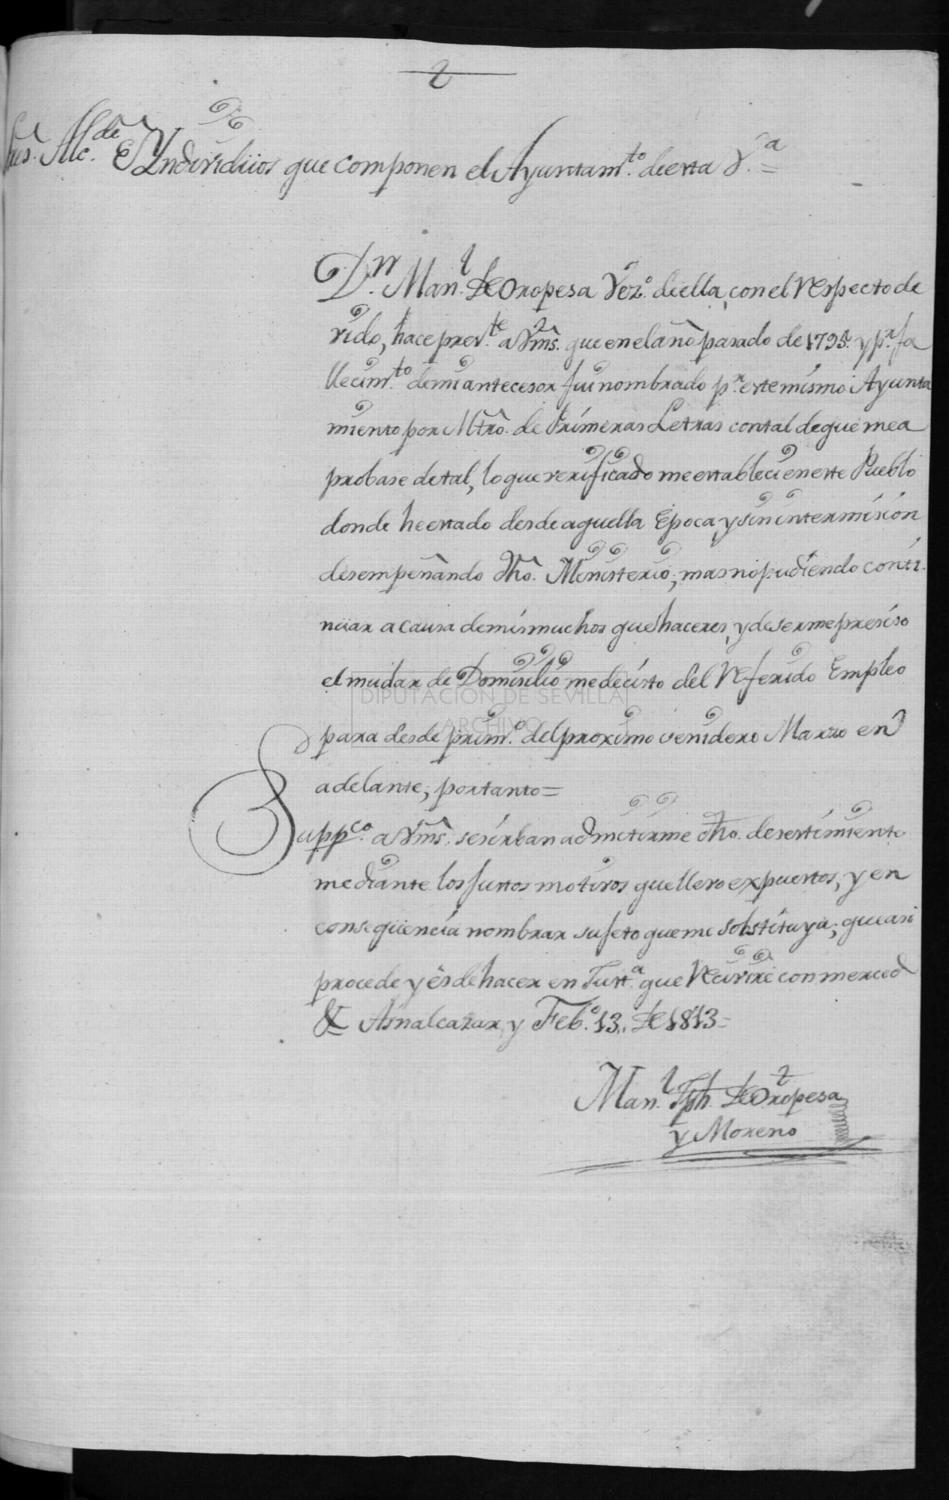 2
Sres. Alc.de é Yndividuos que componen el Ayuntam.to de esta V.a =
D.n Man.l de Oropesa Vez.o de ella, con el respecto de
vido, hace pres.te a Vms. que en el año pasado de 1795. y p.r fa
llecim.to de mi antecesor fui nombrado p.r este mismo Ayunta
miento por Mtro. de Primeras Letras con tal de que me a
probase de tal, lo que verificado me establecí en este Pueblo
donde he estado desde aquella Epoca, y sin intermision
desempeñando dho. Ministerio; mas no pudiendo conti-
nuar a causa de mis muchos quehaceres, y de serme presiso
el mudar de Domisilio me decisto del referido Empleo
DIPUTACIÓN DE SEVILLA
ARCHIVO
para desde prim.o del proximo venidero Marzo en
adelante; por tanto =
Supp.co a Vms. se sirban admitirme dho. desestimiento
mediante los justos motivos que llevo expuestos, y en
conseqüencia nombrar sujeto que me sobstituya; que asi
procede y es de hacer en Just.a que recivire con merced
& Asnalcazar, y Feb.o 13,, de 1813 =
Man.l Jph. de Oropesa
y Moreno